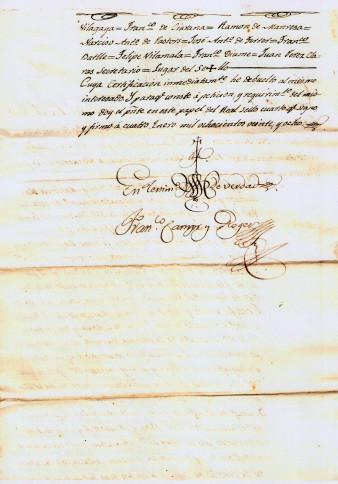 Vilagaya = Fran.co de Ciurana = Ramon de Manresa =
Narciso Ant.º de Fosters = José Ant.º de Ferrer = Fran.co
Batlle = Felipe Vilamala = Fran.co Diume = Juan Perez Cla
ros Secretario = Lugar del Se+llo
Cuya Certificacion immediatam.te he debuelto al mismo
interesado. Y paraq.e conste á peticion, y requirim.to del mis
mo doy el p.nte en este papel del Real sello quarto q.e signo
y firmo á cuatro Enero mil ochocientos veinte, y ocho
En testim.º de verdad
Fran.co Camps y Roger